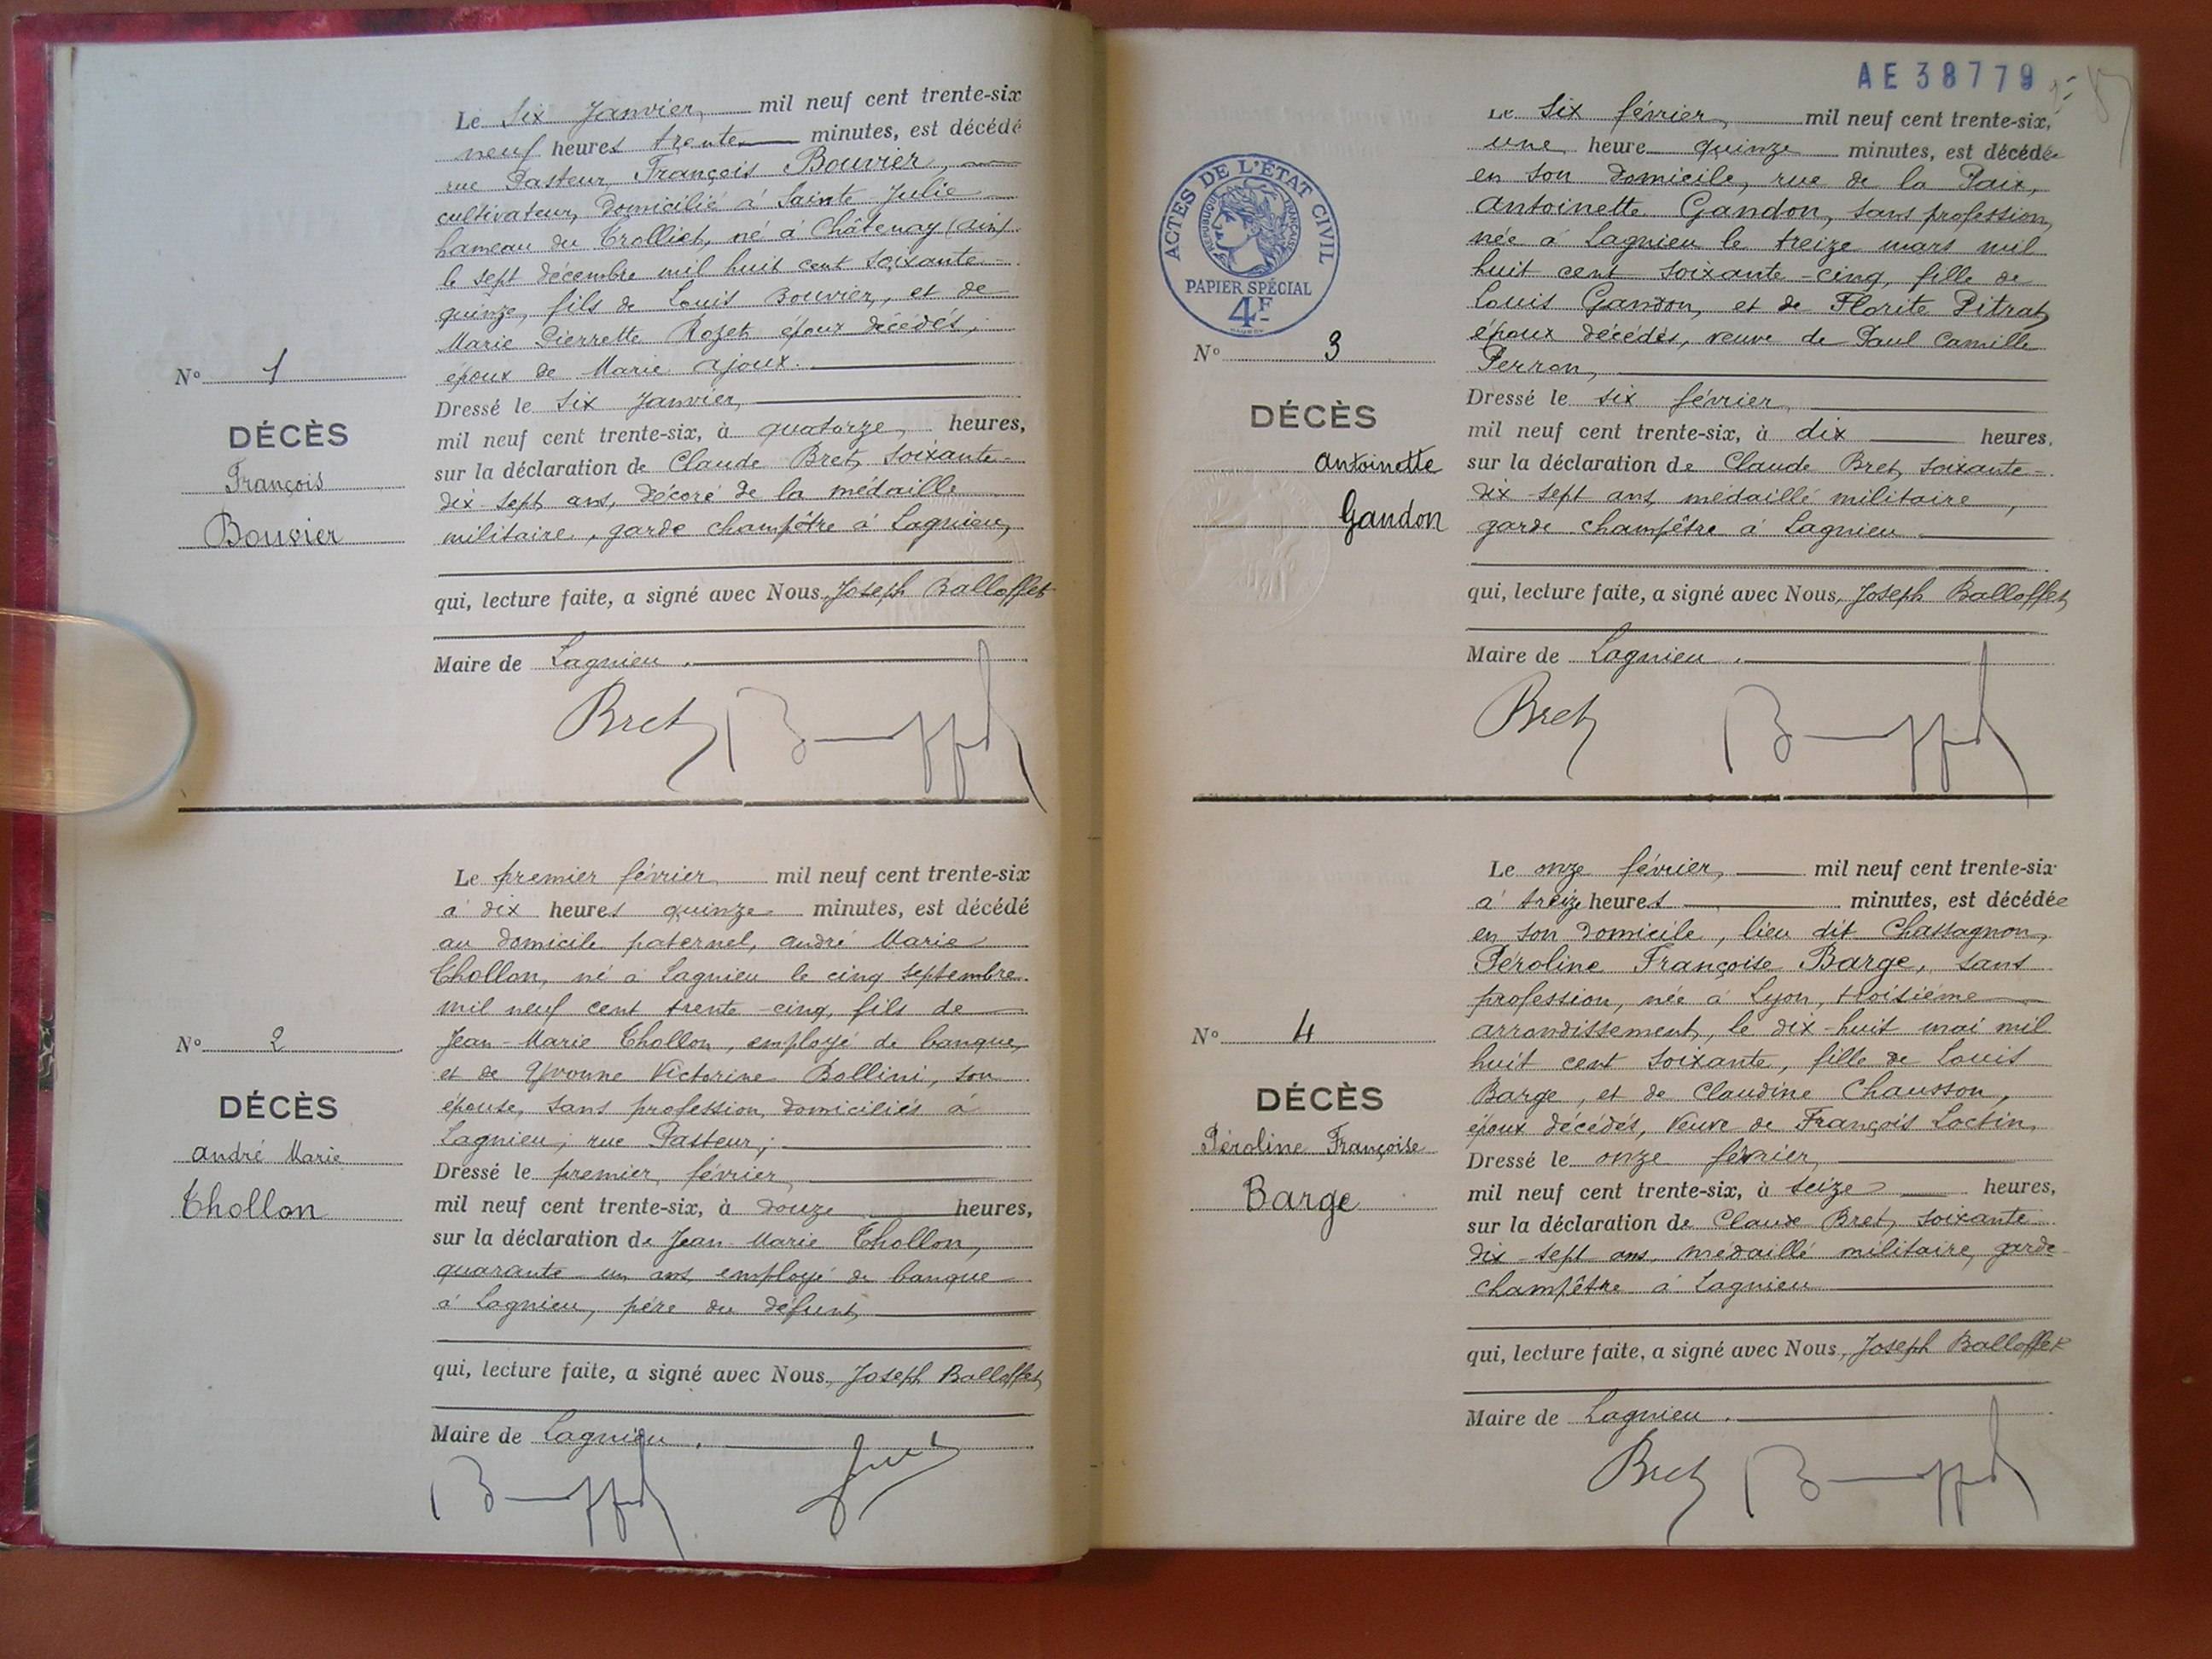 N° 1
DÉCÈS
François
Bouvier
Le six Janvier, mil neuf cent trente-six
neuf heures trente minutes, est décédé
rue Pasteur, François Bouvier,
cultivateur, domicilié à Sainte Julie
hameau du Trolliet, né à Châtenay (ain)
le sept décembre mil huit cent soixante-
quinze, fils de Louis Bouvier, et de
Marie Pierrette Rozet époux décédés,
époux de Marie Ajoux.
Dressé le six Janvier,
mil neuf cent trente-six, à quatorze, heures,
sur la déclaration de Claude Bret, soixante-
dix-sept ans, décoré de la médaille
militaire, garde champêtre à Lagnieu,
qui, lecture faite, a signé avec Nous, Joseph Balloffet
Maire de Lagnieu.
Bret
N° 2
DÉCÈS
André Marie
Thollon
Le premier février, mil neuf cent trente-six
à dix heures quinze minutes, est décédé
au domicile paternel, André Marie
Thollon, né à Lagnieu le cinq septembre
mil neuf cent trente-cinq, fils de
Jean-Marie Thollon, employé de banque,
et de Yvonne Victorine Bollini, son
épouse, sans profession, domiciliés à
Lagnieu, rue Pasteur,
Dressé le premier février,
mil neuf cent trente-six, à douze heures,
sur la déclaration de Jean-Marie Thollon,
quarante-un ans, employé de banque
à Lagnieu, père du défunt,
qui, lecture faite, a signé avec Nous, Joseph Balloffet
Maire de Lagnieu.
AE 38779
ACTES DE L'ÉTAT CIVIL
RÉPUBLIQUE FRANÇAISE
PAPIER SPÉCIAL
4F
N° 3
DÉCÈS
Antoinette
Gandon
Le six février, mil neuf cent trente-six,
une heure quinze minutes, est décédée
en son domicile, rue de la Paix,
Antoinette Gandon, sans profession,
née à Lagnieu le treize mars mil
huit cent soixante-cinq, fille de
Louis Gandon, et de Florite Pitrat,
époux décédés, veuve de Paul Camille
Perron,
Dressé le six février,
mil neuf cent trente-six, à dix heures,
sur la déclaration de Claude Bret, soixante-
dix-sept ans, médaillé militaire,
garde champêtre à Lagnieu
qui, lecture faite, a signé avec Nous, Joseph Balloffet,
Maire de Lagnieu.
Bret
N° 4
DÉCÈS
Péroline Françoise
Barge
Le onze février, mil neuf cent trente-six
à treize heures minutes, est décédée
en son domicile, lieu dit Chassagnon,
Péroline Françoise Barge, sans
profession, née à Lyon, troisième
arrondissement, le dix-huit mai mil
huit cent soixante, fille de Louis
Barge, et de Claudine Chausson,
époux décédés, veuve de François Loctin,
Dressé le onze février,
mil neuf cent trente-six, à seize heures,
sur la déclaration de Claude Bret, soixante
dix-sept ans, médaillé militaire, garde-
champêtre à Lagnieu
qui, lecture faite, a signé avec Nous, Joseph Balloffet
Maire de Lagnieu.
Bret